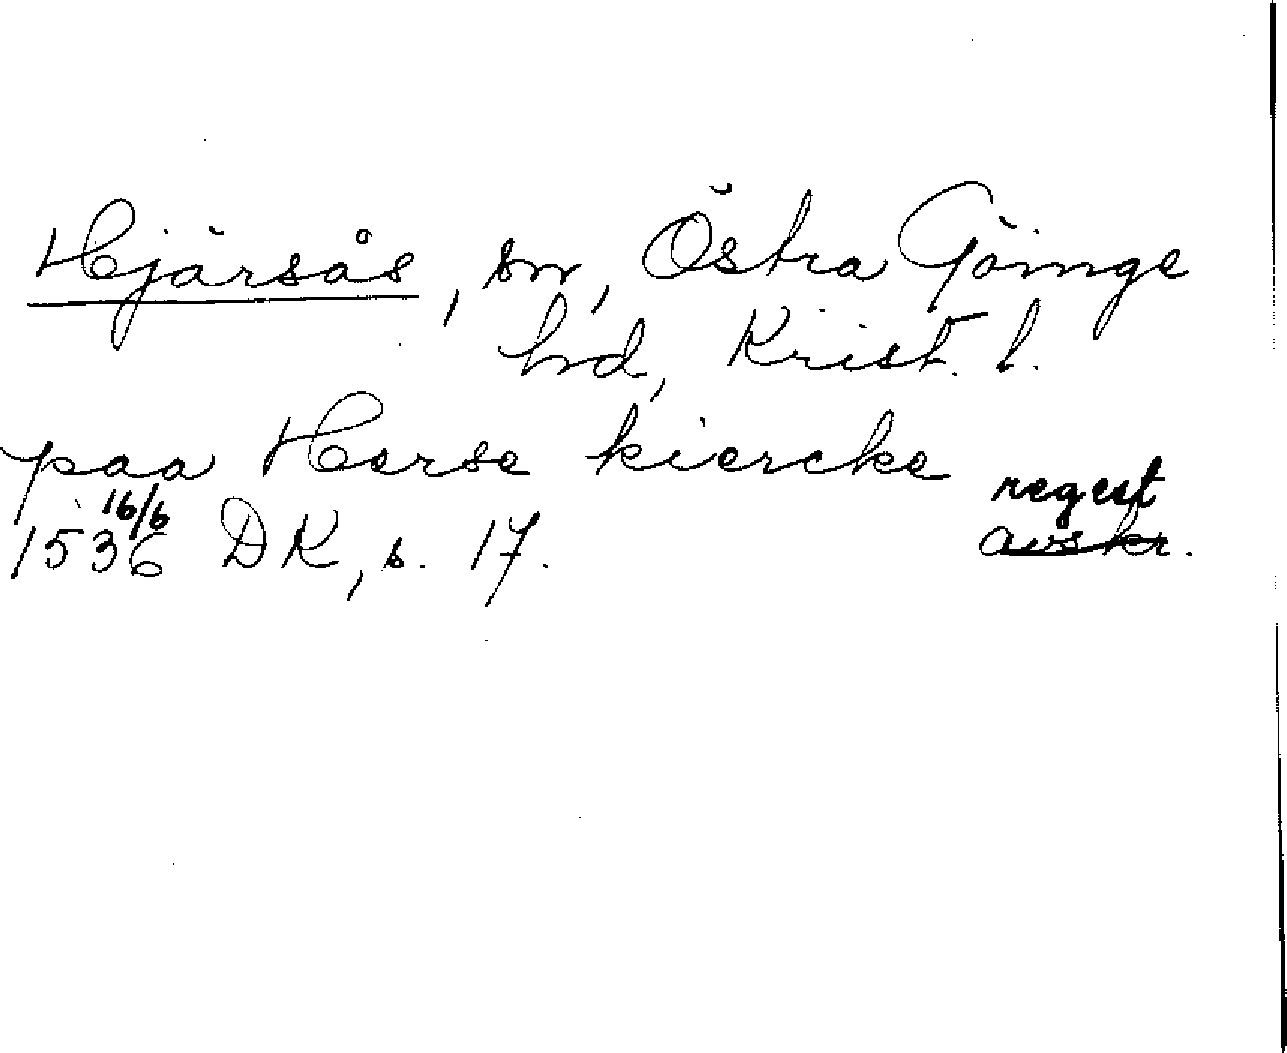 Hjärsås, sn, Östra Göinge
hd, Krist. l.
paa Herse kiercke
regest
16/6
1536 DK, s. 17. avskr.